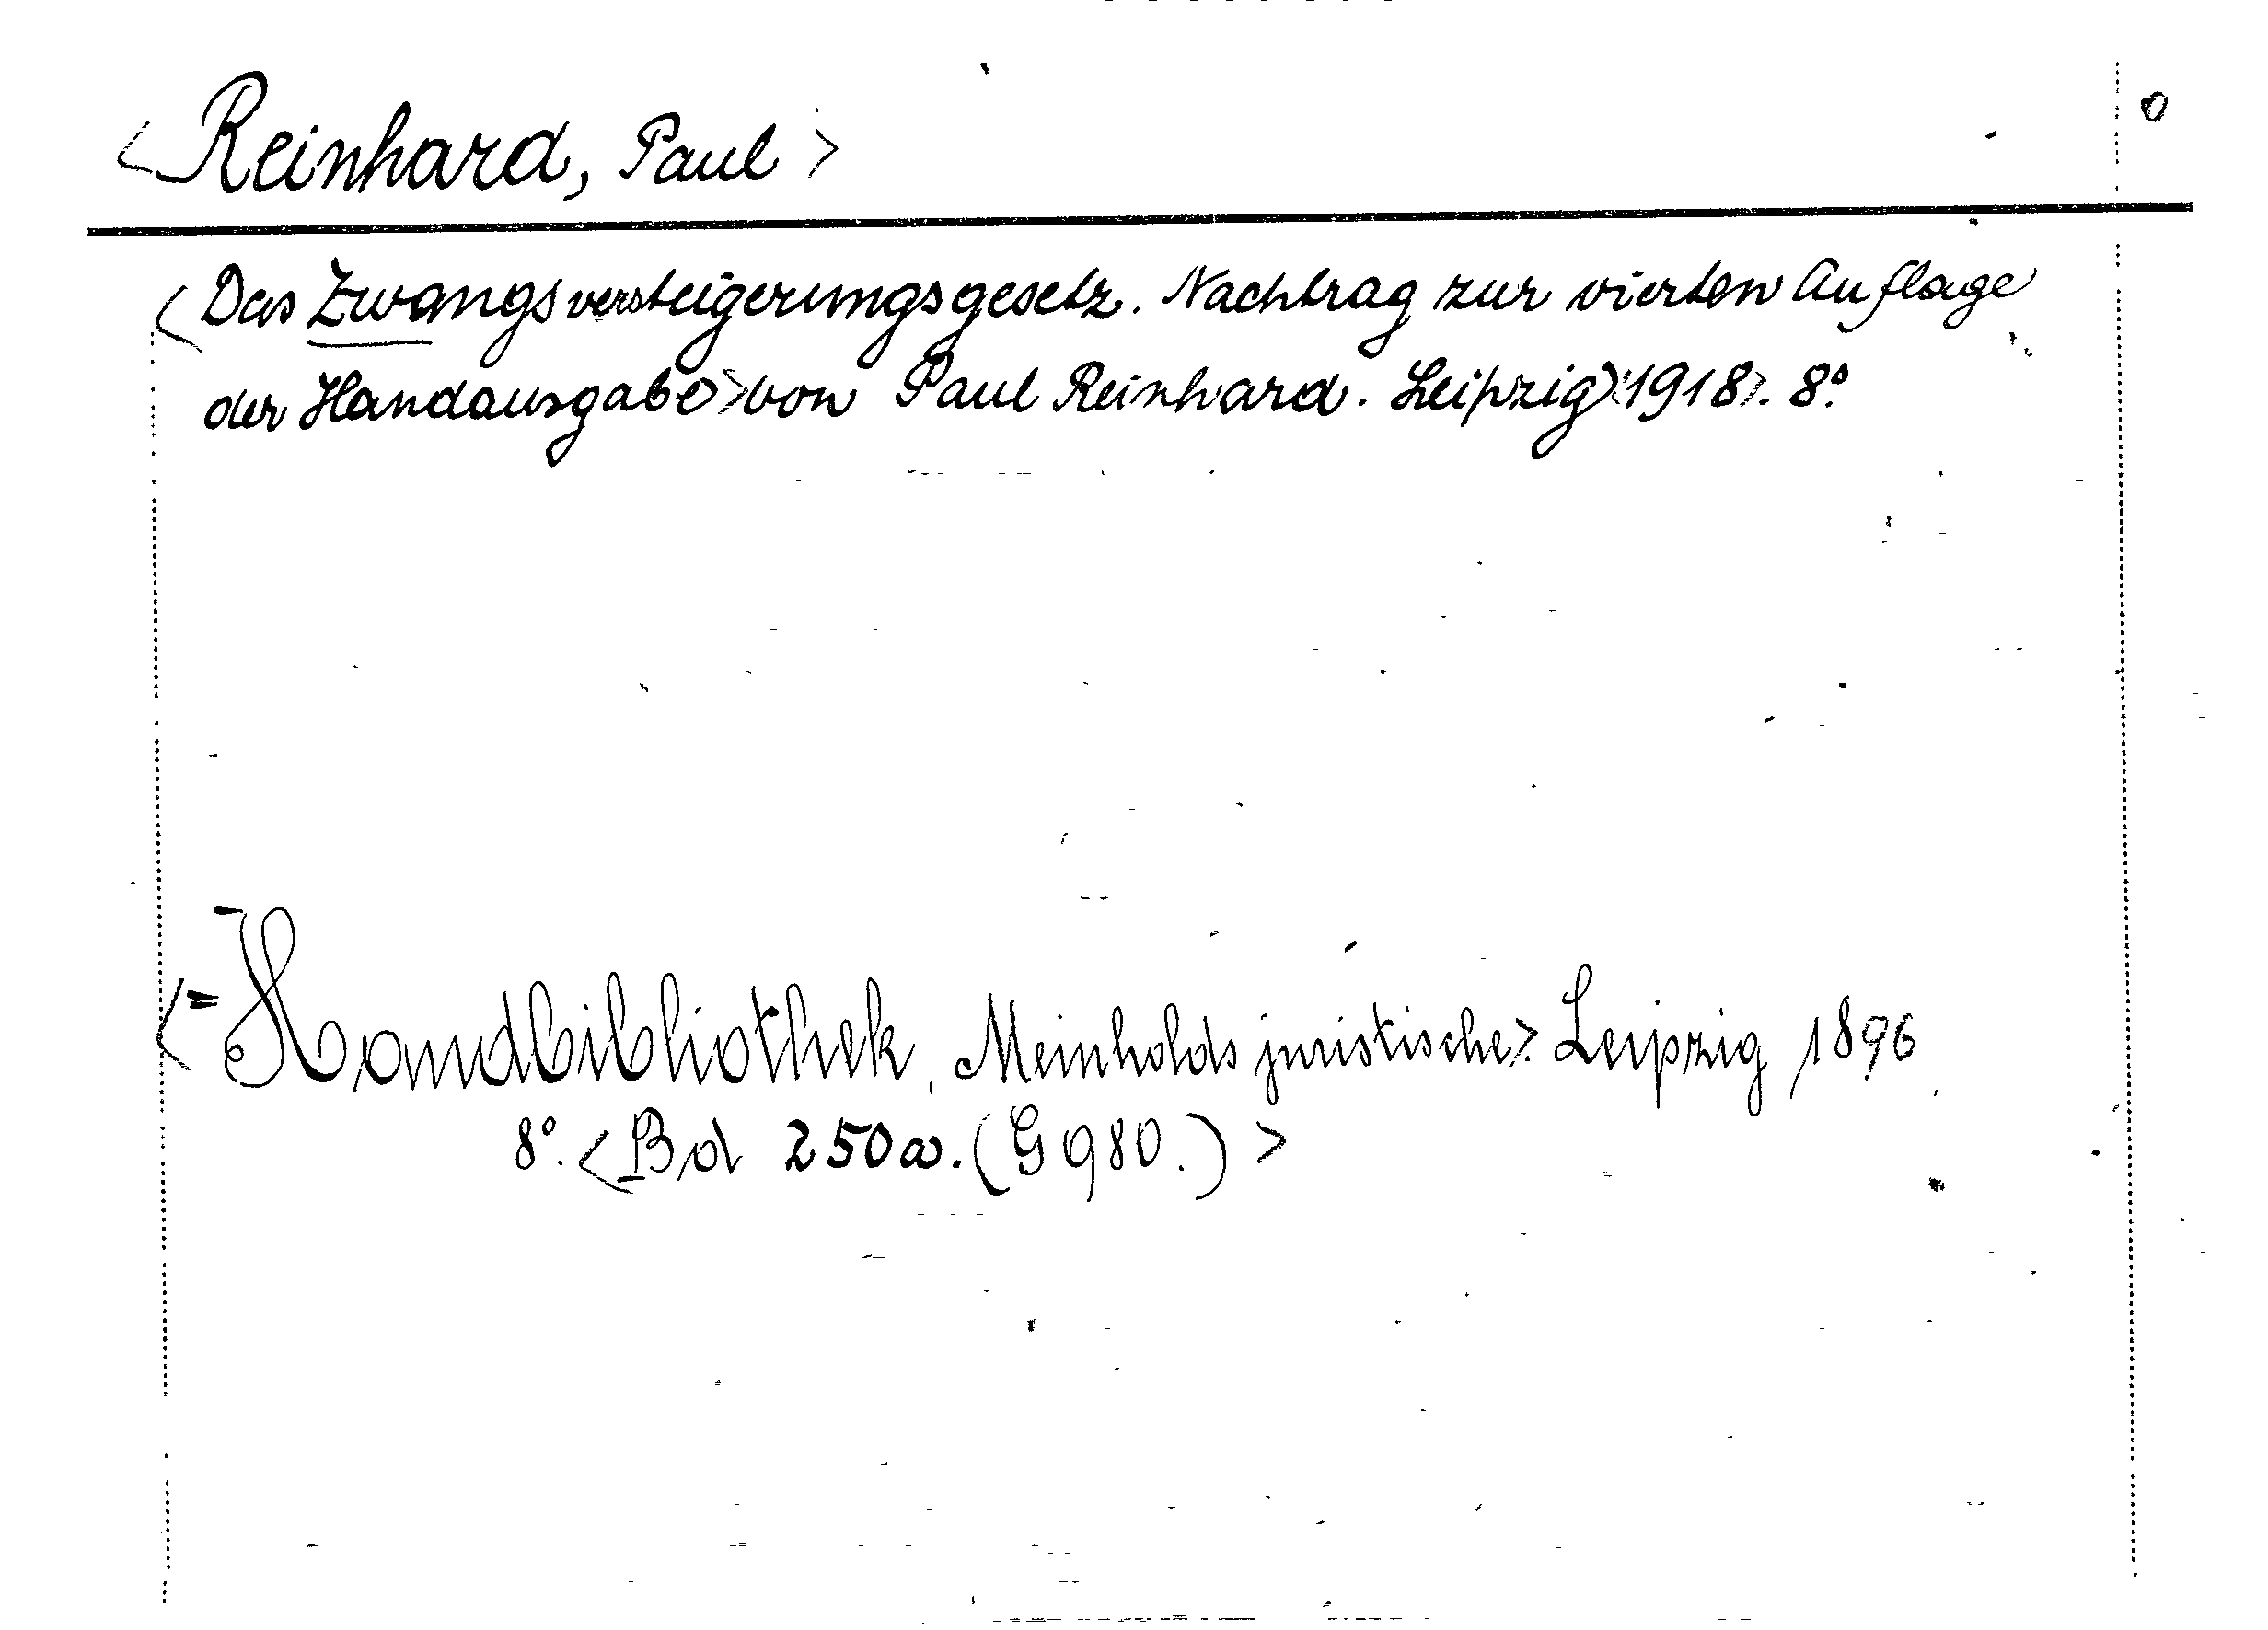 <Reinhard, Paul> 0
<Das Zwangsversteigerungsgesetz. Nachtrag zur vierten Auflage
der Handausgabe> von Paul Reinhard. Leipzig <1918>. 8°.
<= Handbibliothek, Meinholds juristische> Leipzig 1896
8°. <Bd 250a. (G 980.)>